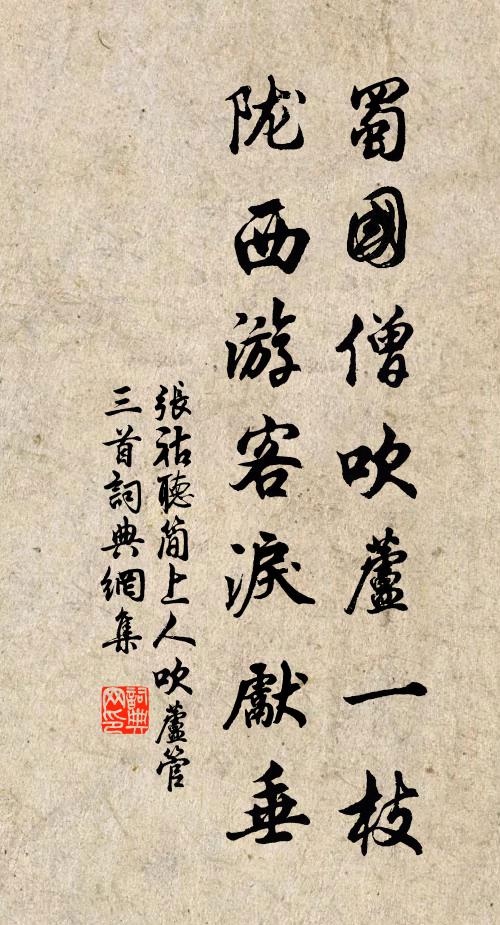 蜀國僧吹蘆一枝
陇西游客淚獻垂
張祜聽簡上人吹蘆管
三首詞典網集
詞典网印